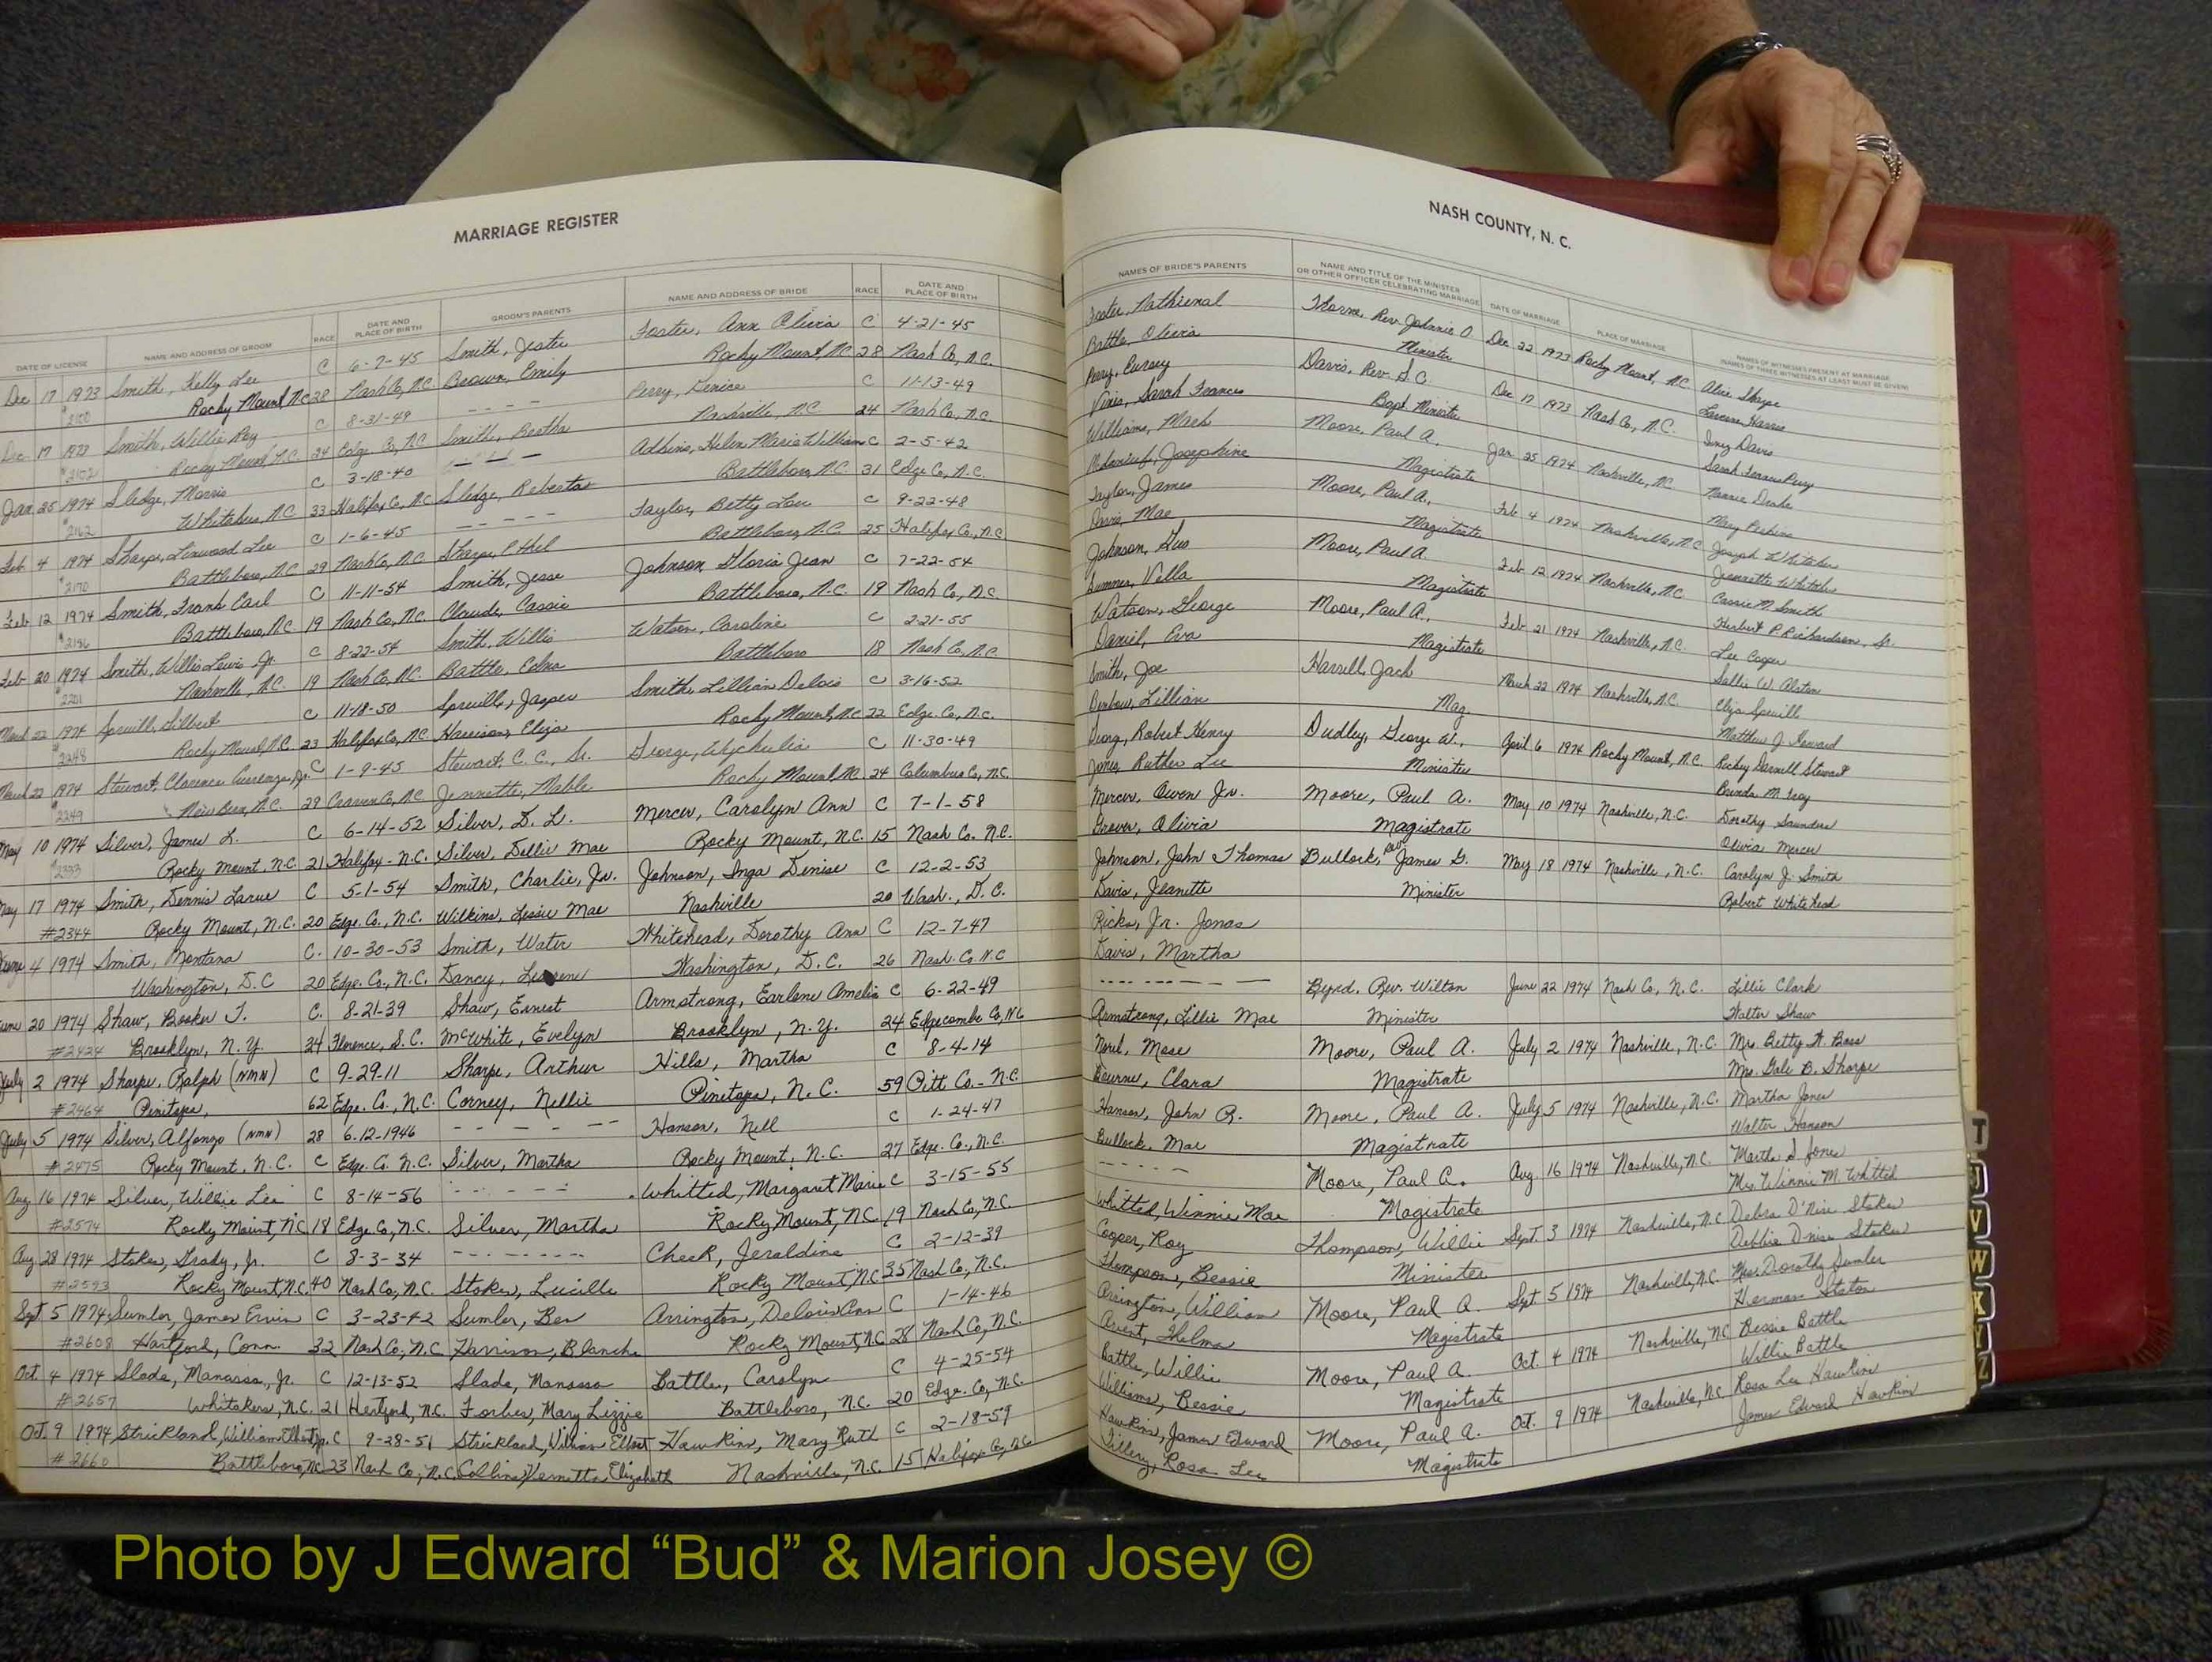 MARRIAGE REGISTER
DATE OF LICENSE NAME AND ADDRESS OF GROOM RACE DATE AND PLACE OF BIRTH GROOM'S PARENTS NAME AND ADDRESS OF BRIDE RACE DATE AND PLACE OF BIRTH
Dec 17 1973 Smith, Kelly Lee C 6-7-45 Smith, Jester Foster, Ann Olivia C 4-21-45
Rocky Mount NC 28 Nash Co, NC Brown, Emily Rocky Mount, NC 28 Nash Co, N.C.
Dec 17 1973 Smith, Willie Ray C 8-31-49 - - - - Perry, Denise C 11-13-49
Rocky Mount, N.C. 24 Edge Co, NC Smith, Bertha Nashville, NC 24 Nash Co, N.C.
Jan 25 1974 Sledge, Morris C 3-18-40 - - - Adkins, Helen Marie William C 2-5-42
#2162 Whitakers, NC 33 Halifax Co, NC Sledge, Roberta Battleboro, N.C. 31 Edge Co, N.C.
Feb 4 1974 Sharpe, Linwood Lee C 1-6-45 - - - - - Taylor, Betty Lou C 9-22-48
#2170 Battleboro, NC 29 Nash Co, NC Sharpe, Ethel Battleboro, N.C. 25 Halifax Co, N.C.
Feb 12 1974 Smith, Frank Earl C 11-11-54 Smith, Jesse Johnson Gloria Jean C 7-22-54
#2186 Battleboro, NC 19 Nash Co, NC. Claude, Cassie Battleboro, N.C. 19 Nash Co, N.C.
Feb 20 1974 Smith, Willis Lewis Jr. C 8-22-54 Smith, Willis Watson, Caroline C 2-21-55
#2201 Nashville, N.C. 19 Nash Co, N.C. Battle, Edna Battleboro 18 Nash Co, N.C.
March 22 1974 Spruill, Gilbert C 11-18-50 Spruill, Jasper Smith, Lillian Delois C 3-16-52
#2248 Rocky Mount, N.C. 23 Halifax Co, NC Harrison, Eliza Rocky Mount, N.C. 22 Edge. Co, N.C.
March 22 1974 Stewart, Clarence Jr. C 1-9-45 Stewart, C.C., Sr. George, C 11-30-49
#2249 New Bern, N.C. 29 Craven Co, NC Jennette, Mable Rocky Mount, NC 24 Columbus Co, N.C.
May 10 1974 Silver, James L. C 6-14-52 Silver, D. L. Mercer, Carolyn Ann C 7-1-58
#2333 Rocky Mount N.C. 21 Halifax-N.C. Silver, Dellie Mae Rocky Mount, N.C. 15 Nash Co. N.C.
May 17 1974 Smith, Dennis Larue C 5-1-54 Smith, Charlie, Jr. Johnson, Inga Denise C 12-2-53
#2344 Rocky Mount, N.C. 20 Edge. Co., N.C. Wilkins, Lessie Mae Nashville 20 Wash., D.C.
June 4 1974 Smith, Montana C. 10-30-53 Smith, Water Whitehead, Dorothy Ann C 12-7-47
Washington, D.C 20 Edge. Co, N.C. Dancy, Washington, D.C. 26 Nash Co N.C
June 20 1974 Shaw, Booker T. C. 8-21-39 Shaw, Ernest Armstrong, Earlene Amelia C 6-22-49
#2424 Brooklyn, N.Y. 34 Florence, S.C. McWhite, Evelyn Brooklyn, N.Y. 24 Edgecombe Co, NC
July 2 1974 Sharpe, Ralph (NMN) C 9-29-11 Sharpe, Arthur Hills, Martha C 8-4-14
#2464 Pinetops, 62 Edge. Co., N.C. Corney, Nellie Pinetops, N.C. 59 Pitt Co. - N.C.
July 5 1974 Silver, Alfonzo (NMN) 28 6-12-1946 - - - - - Hanson, Nell C 1-24-47
#2475 Rocky Mount, N.C. C Edge. Co. N.C. Silver, Martha Rocky Mount, N.C. 27 Edge. Co., N.C.
Aug 16 1974 Silver, Willie Lee C 8-14-56 - - - - - Whitted, Margaret Marie C 3-15-55
#2574 Rocky Mount, NC 18 Edge Co, N.C. Silver, Martha Rocky Mount, NC 19 Nash Co, N.C.
Aug 28 1974 Stokes, Grady, Jr. C 8-3-34 - - - - - - - Cheek, Jeraldine C 2-12-39
#2593 Rocky Mount, NC 40 Nash Co, N.C. Stokes, Lucille Rocky Mount, NC 35 Nash Co, N.C.
Sept 5 1974 Sumler, James Ervin C 3-23-42 Sumler, Ben Arrington, Delois Ann C 1-14-46
#2608 Hartford, Conn. 32 Nash Co, N.C Harrison, Blanche Rocky Mount, NC 28 Nash Co, N.C.
Oct. 4 1974 Slade, Manassa, Jr. C 12-13-52 Slade, Manassa Battle, Carolyn C 4-25-54
#2657 Whitakers, N.C. 21 Hertford, N.C. Forbes, Mary Lizzie Battleboro, N.C. 20 Edge. Co, N.C.
Oct. 9 1974 Strickland, William Elbert Jr. C 9-28-51 Strickland, William Elbert Hawkins, Mary Ruth C 2-18-59
#2660 Battleboro, NC 23 Nash Co, N.C. Collins, Vernetta Elizabeth Nashville, N.C. 15 Halifax Co, N.C
NASH COUNTY, N. C.
NAMES OF BRIDE'S PARENTS NAME AND TITLE OF THE MINISTER OR OTHER OFFICER CELEBRATING MARRIAGE DATE OF MARRIAGE PLACE OF MARRIAGE NAMES OF WITNESSES PRESENT AT MARRIAGE (NAMES OF THREE WITNESSES AT LEAST MUST BE GIVEN)
Foster, Nathienal Thorne, Rev. Johnnie O. Dec 22 1973 Rocky Mount, NC Alice Sharpe
Battle, Olivia Minister Lavern Harris
Perry, Davis, Rev. S.C. Dec 17 1973 Nash Co., N.C. Inez Davis
Sarah Frances Bapt. Minister Sarah Frances Perry
Williams, Mack Moore, Paul A. Jan 25 1974 Nashville, NC Nannie Drake
Josephine Magistrate Mary Perkins
Taylor, James Moore, Paul A. Feb 4 1974 Nashville, NC Joseph Whitaker
Davis, Mae Magistrate Jeannette Whitaker
Johnson, Gus Moore, Paul A Feb 12 1974 Nashville, NC Cassie M. Smith
Sumner, Vella Magistrate Herbert P. Richardson, Sr.
Watson, George Moore, Paul A., Feb 21 1974 Nashville, N.C. Lee Cooper
Daniel, Eva Magistrate Sallie W. Alston
Smith, Joe Harrell, Jack March 22 1974 Nashville, N.C. Eliza Spruill
Lillian Mag. Matthew J. Howard
Georg, Robert Henry Dudley, George W., April 6 1974 Rocky Mount, N.C. Ricky Darnell Stewart
Jones, Ruther Lee Minister Brenda M.
Mercer, Owen Jr. Moore, Paul A. May 10 1974 Nashville, N.C. Dorothy Saunders
Grover, Olivia Magistrate Olivia Mercer
Johnson, John Thomas Bullock, Rev. James G. May 18 1974 Nashville, N.C. Carolyn J. Smith
Davis, Jeanette Minister Robert Whitehead
Ricks, Jr. Jonas
Davis, Martha
- - - - - - - Byrd, Rev. Wilton June 22 1974 Nash Co, N.C. Lillie Clark
Armstrong, Lillie Mae Minister Walter Shaw
Moore, Paul A. July 2 1974 Nashville, N.C. Mrs. Betty W. Bass
Bourne, Clara Magistrate Mrs. Gale B. Sharpe
Hanson, John R. Moore, Paul A. July 5 1974 Nashville, N.C. Martha Jones
Bullock, Mae Magistrate Walter Hanson
- - - - - Moore, Paul A. Aug 16 1974 Nashville, N.C. Martha S. Jones
Whitted, Winnie Mae Magistrate Mrs. Winnie M. Whitted
Cooper, Roy Thompson, Willie Sept. 3 1974 Nashville, N.C. Debra D'nise Stokes
Thompson, Bessie Minister Debbie Dnise Stokes
Arrington, William Moore, Paul A. Sept 5 1974 Nashville, N.C. Mrs. Dorothy Sumler
Avent, Thelma Magistrate Herman Staton
Battle, Willie Moore, Paul A. Oct. 4 1974 Nashville, NC Bessie Battle
Williams, Bessie Magistrate Willie Battle
Hawkins, James Edward Moore, Paul A. Oct. 9 1974 Nashville, NC Rosa Lee Hawkins
Tillery, Rosa Lee Magistrate James Edward Hawkins
T
V
W
Y
Z
Photo by J Edward “Bud” & Marion Josey ©